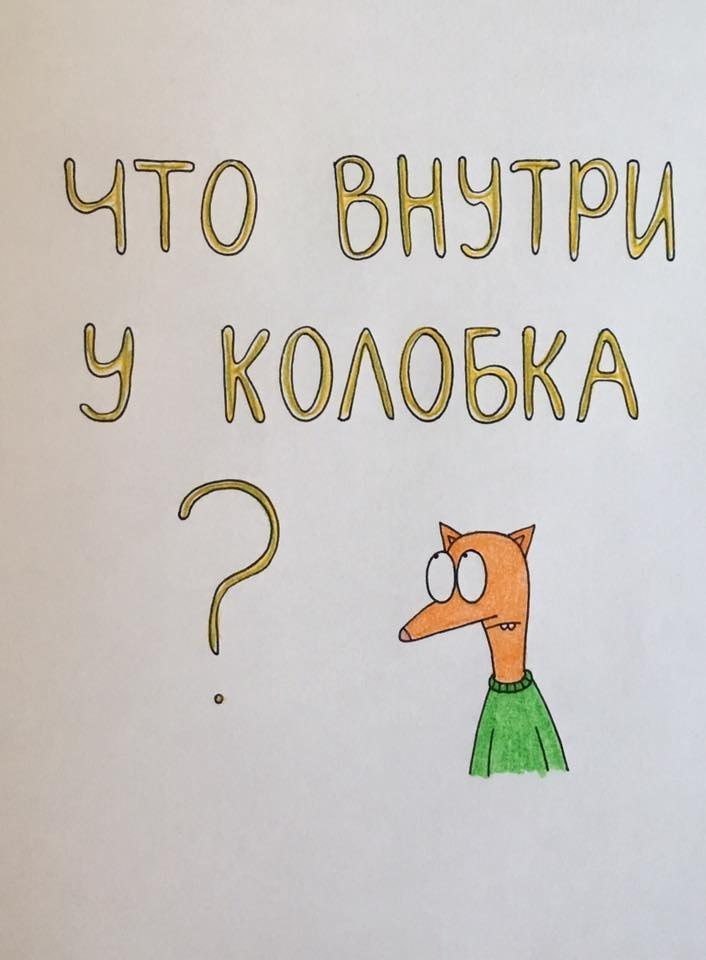 ЧТО ВНУТРИ
У КОЛОБКА
?